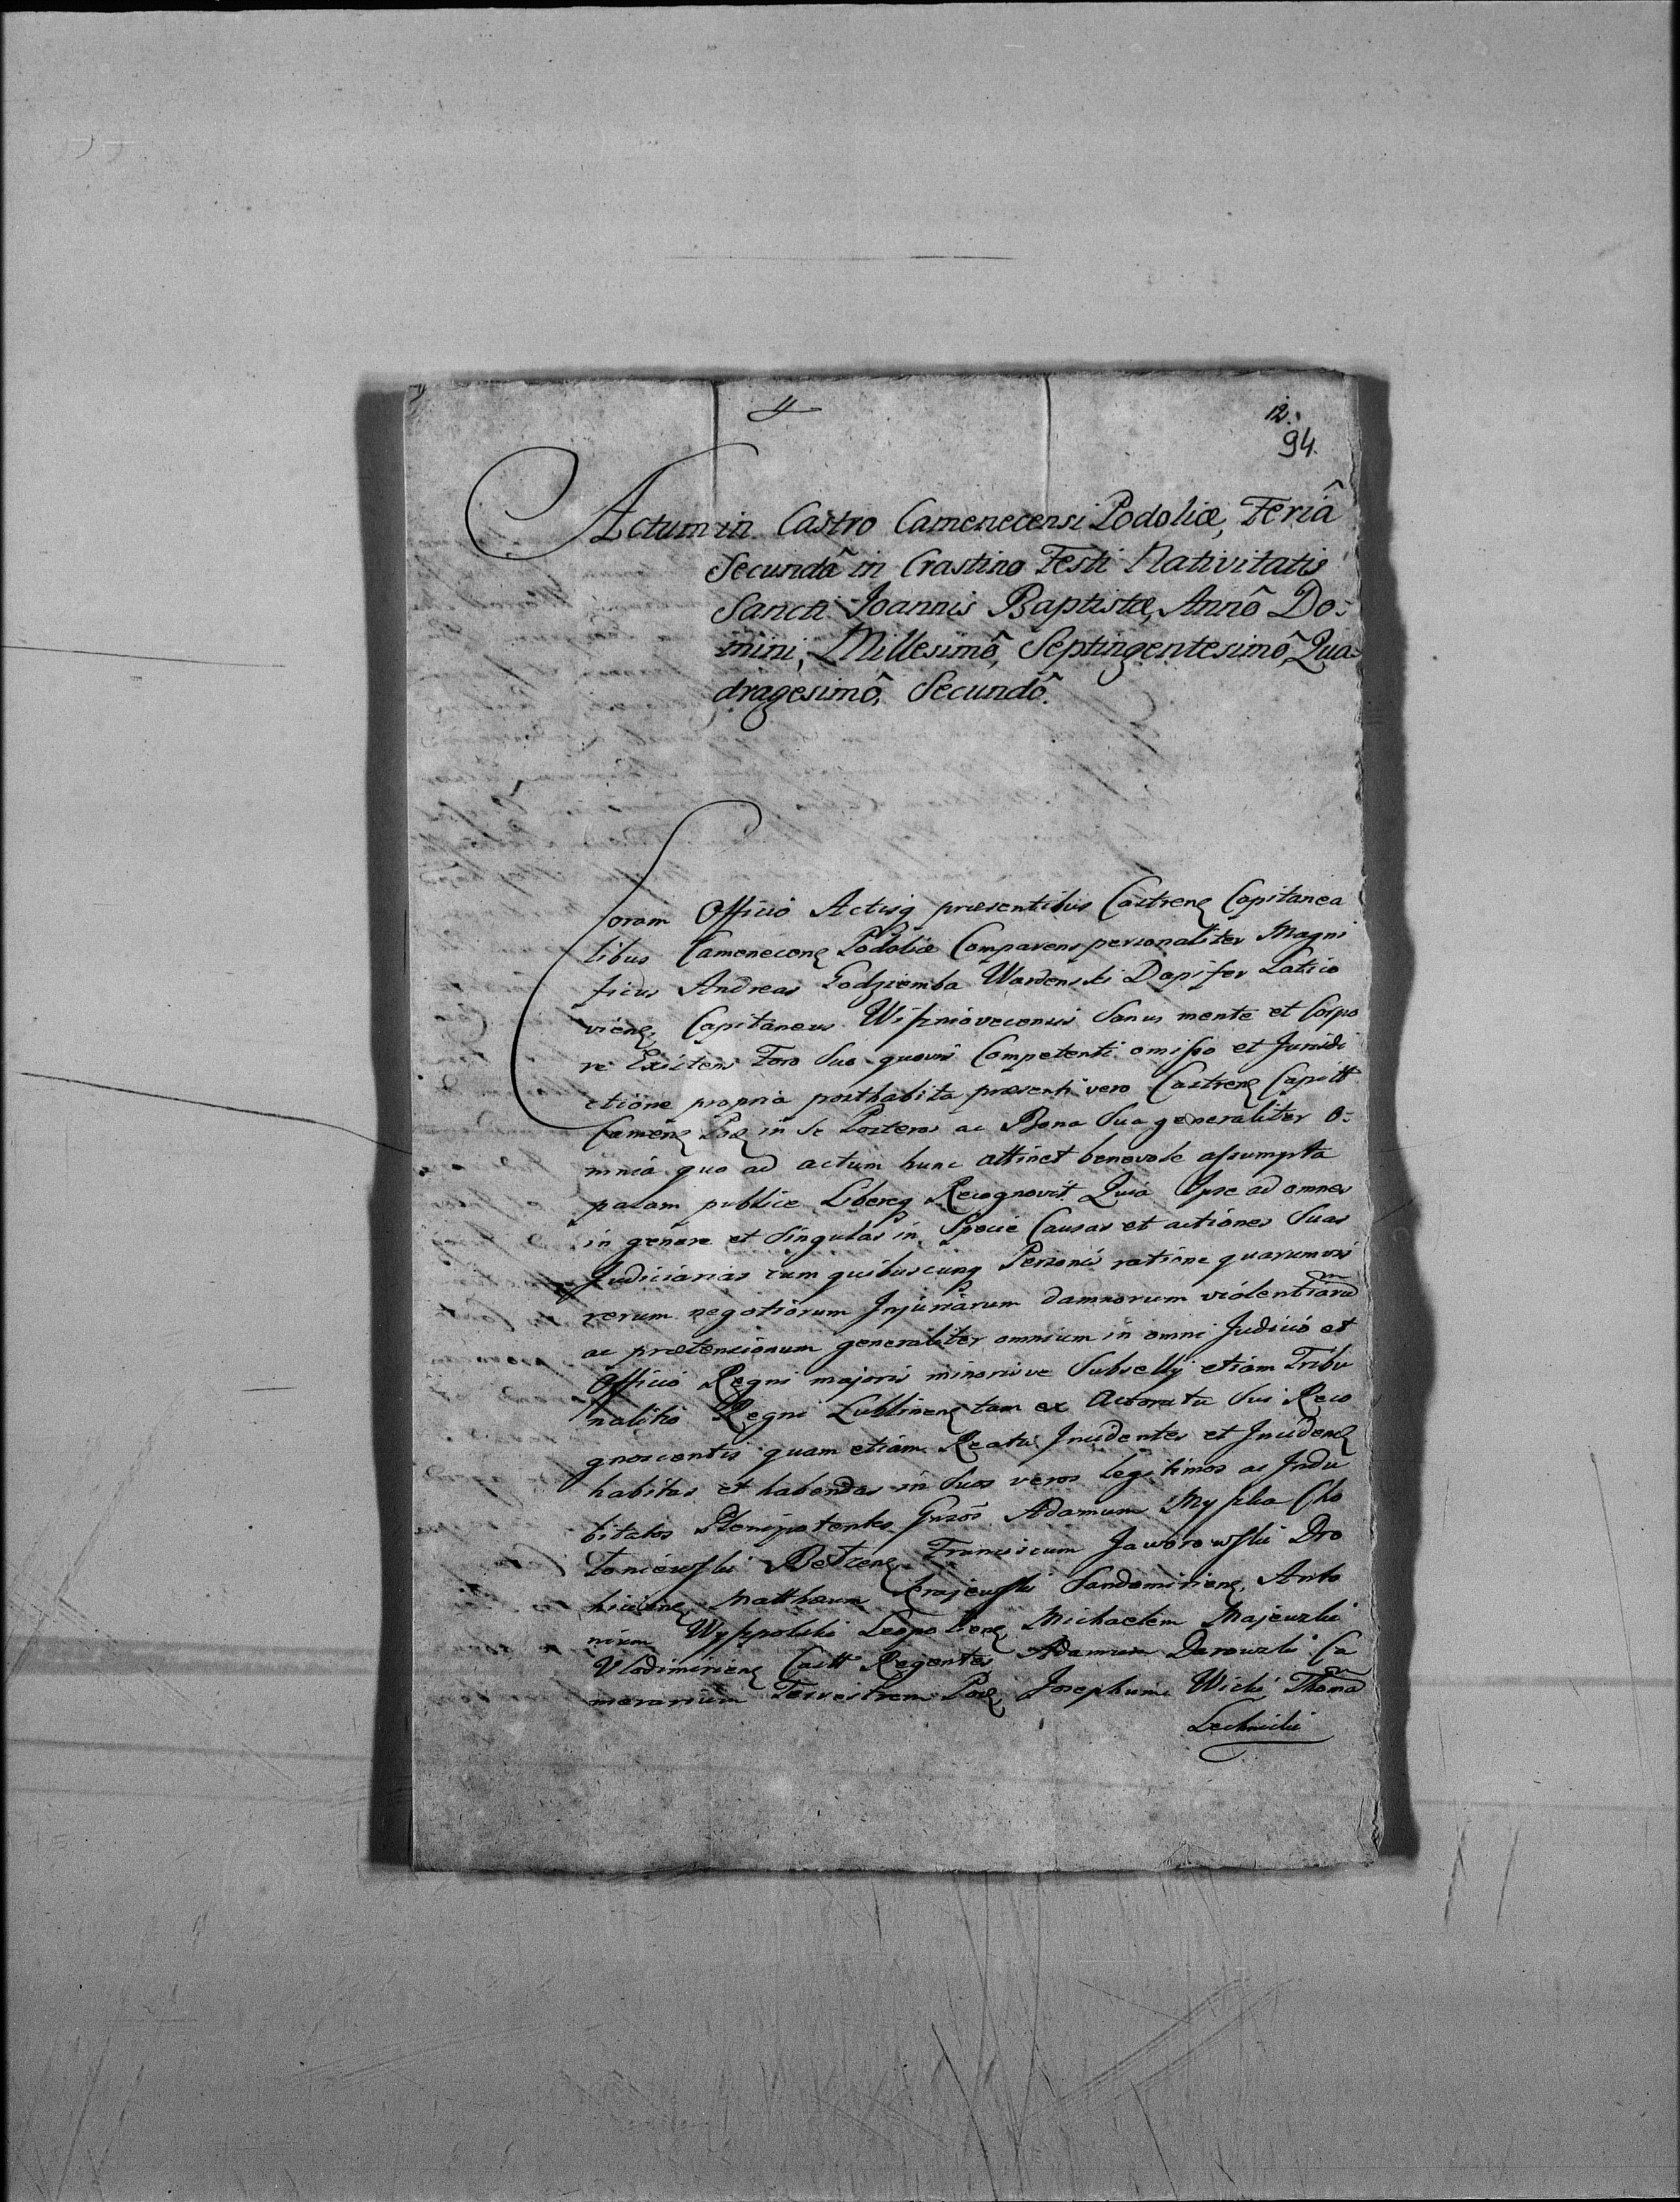 12.
94.
Actum in Castro Camenecensi Podoliæ, Feriâ
Secundâ in Crastino Festi Nativitatis
Sancti Joannis Baptistæ, Annô Do-
mini, Millesimô, Septingentesimô, Qua-
dragesimô, Secundô.
Coram Officio Actisq præsentibus Castrens Capitanea
libus Camenecens Podoliæ Comparens personaliter Magni
ficus Andreas Godziemba Wardenski Dapifer Latico
viens, Capitaneus Wiszniovecensis Sanus mente et Corpo
re Existens Foro Suo quovis Competenti omisso et Jurisdi
ctione propria posthabita præsenti vero Castrens Capitt
Camens Pod in Se Posteros ac Bona Sua generaliter O-
mnia quo ad actum hunc attinet benevole assumpta
palam publice Libereq Recognovit Quia Ipse ad omnes
in genere et Singulas in Specie Causas et actiones Suas
Judiciarias cum quibuscunq Personis ratione quarumvis
rerum negotiorum Injuriarum damnorum violentiarum
ac prætensionum generaliter omnium in omni Judicio et
Officio Regni majoris minorisve Subsellij etiam Tribu
nalitio Regni Lublinens tam ex Actoratu Sui Reco
gnoscentis quam etiam Reatu Incidentes et Incidens
habitas et habendas in Suos veros Legitimos ac Indu
bitatos Plenipotentes Gnsos Adamum Myszka Cho
loniewski Betzens, Franciscum Jaworowski Dro
hiciens Matthæum Krajewski Sandomiriens, Anto
nium Wyszpolski Leopoliens Michaelem Majewski
Vlodimiriens Castt Regentes Adamum Darowski Ca
merarium Terrestrem Pod, Josephum Wicki Thoma
Lechnicki